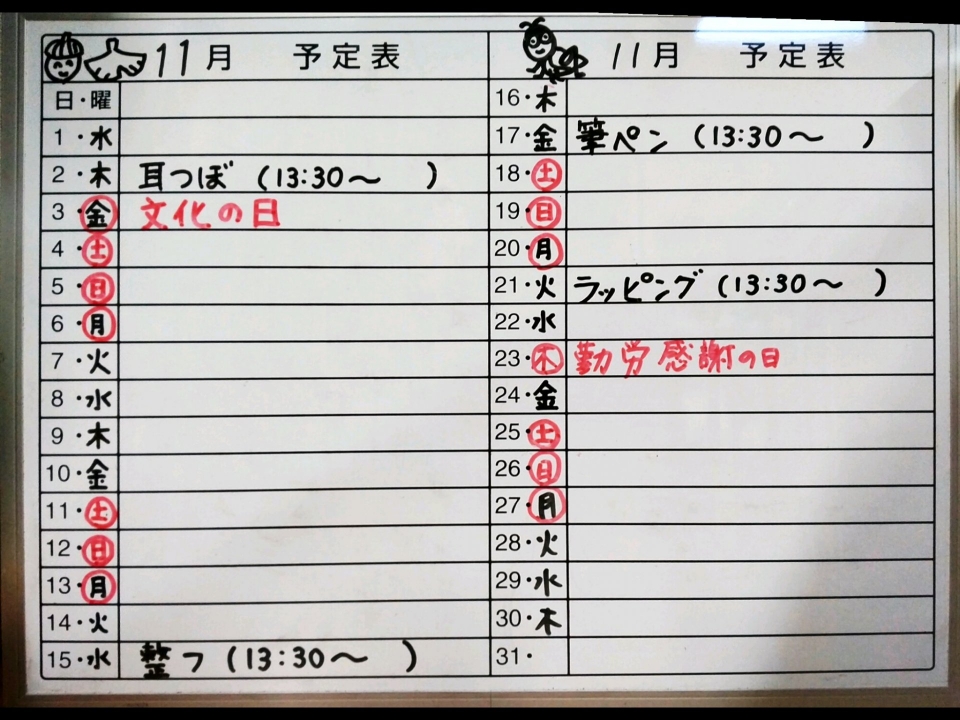 11月 予定表
日・曜
1・水
2・木 耳つぼ (13:30～ )
3・金 文化の日
4・土
5・日
6・月
7・火
8・水
9・木
10・金
11・土
12・日
13・月
14・火
15・水 整フ (13:30～ )
11月 予定表
16・木
17・金 筆ペン (13:30～ )
18・土
19・日
20・月
21・火 ラッピング (13:30～ )
22・水
23・木 勤労感謝の日
24・金
25・土
26・日
27・月
28・火
29・水
30・木
31・